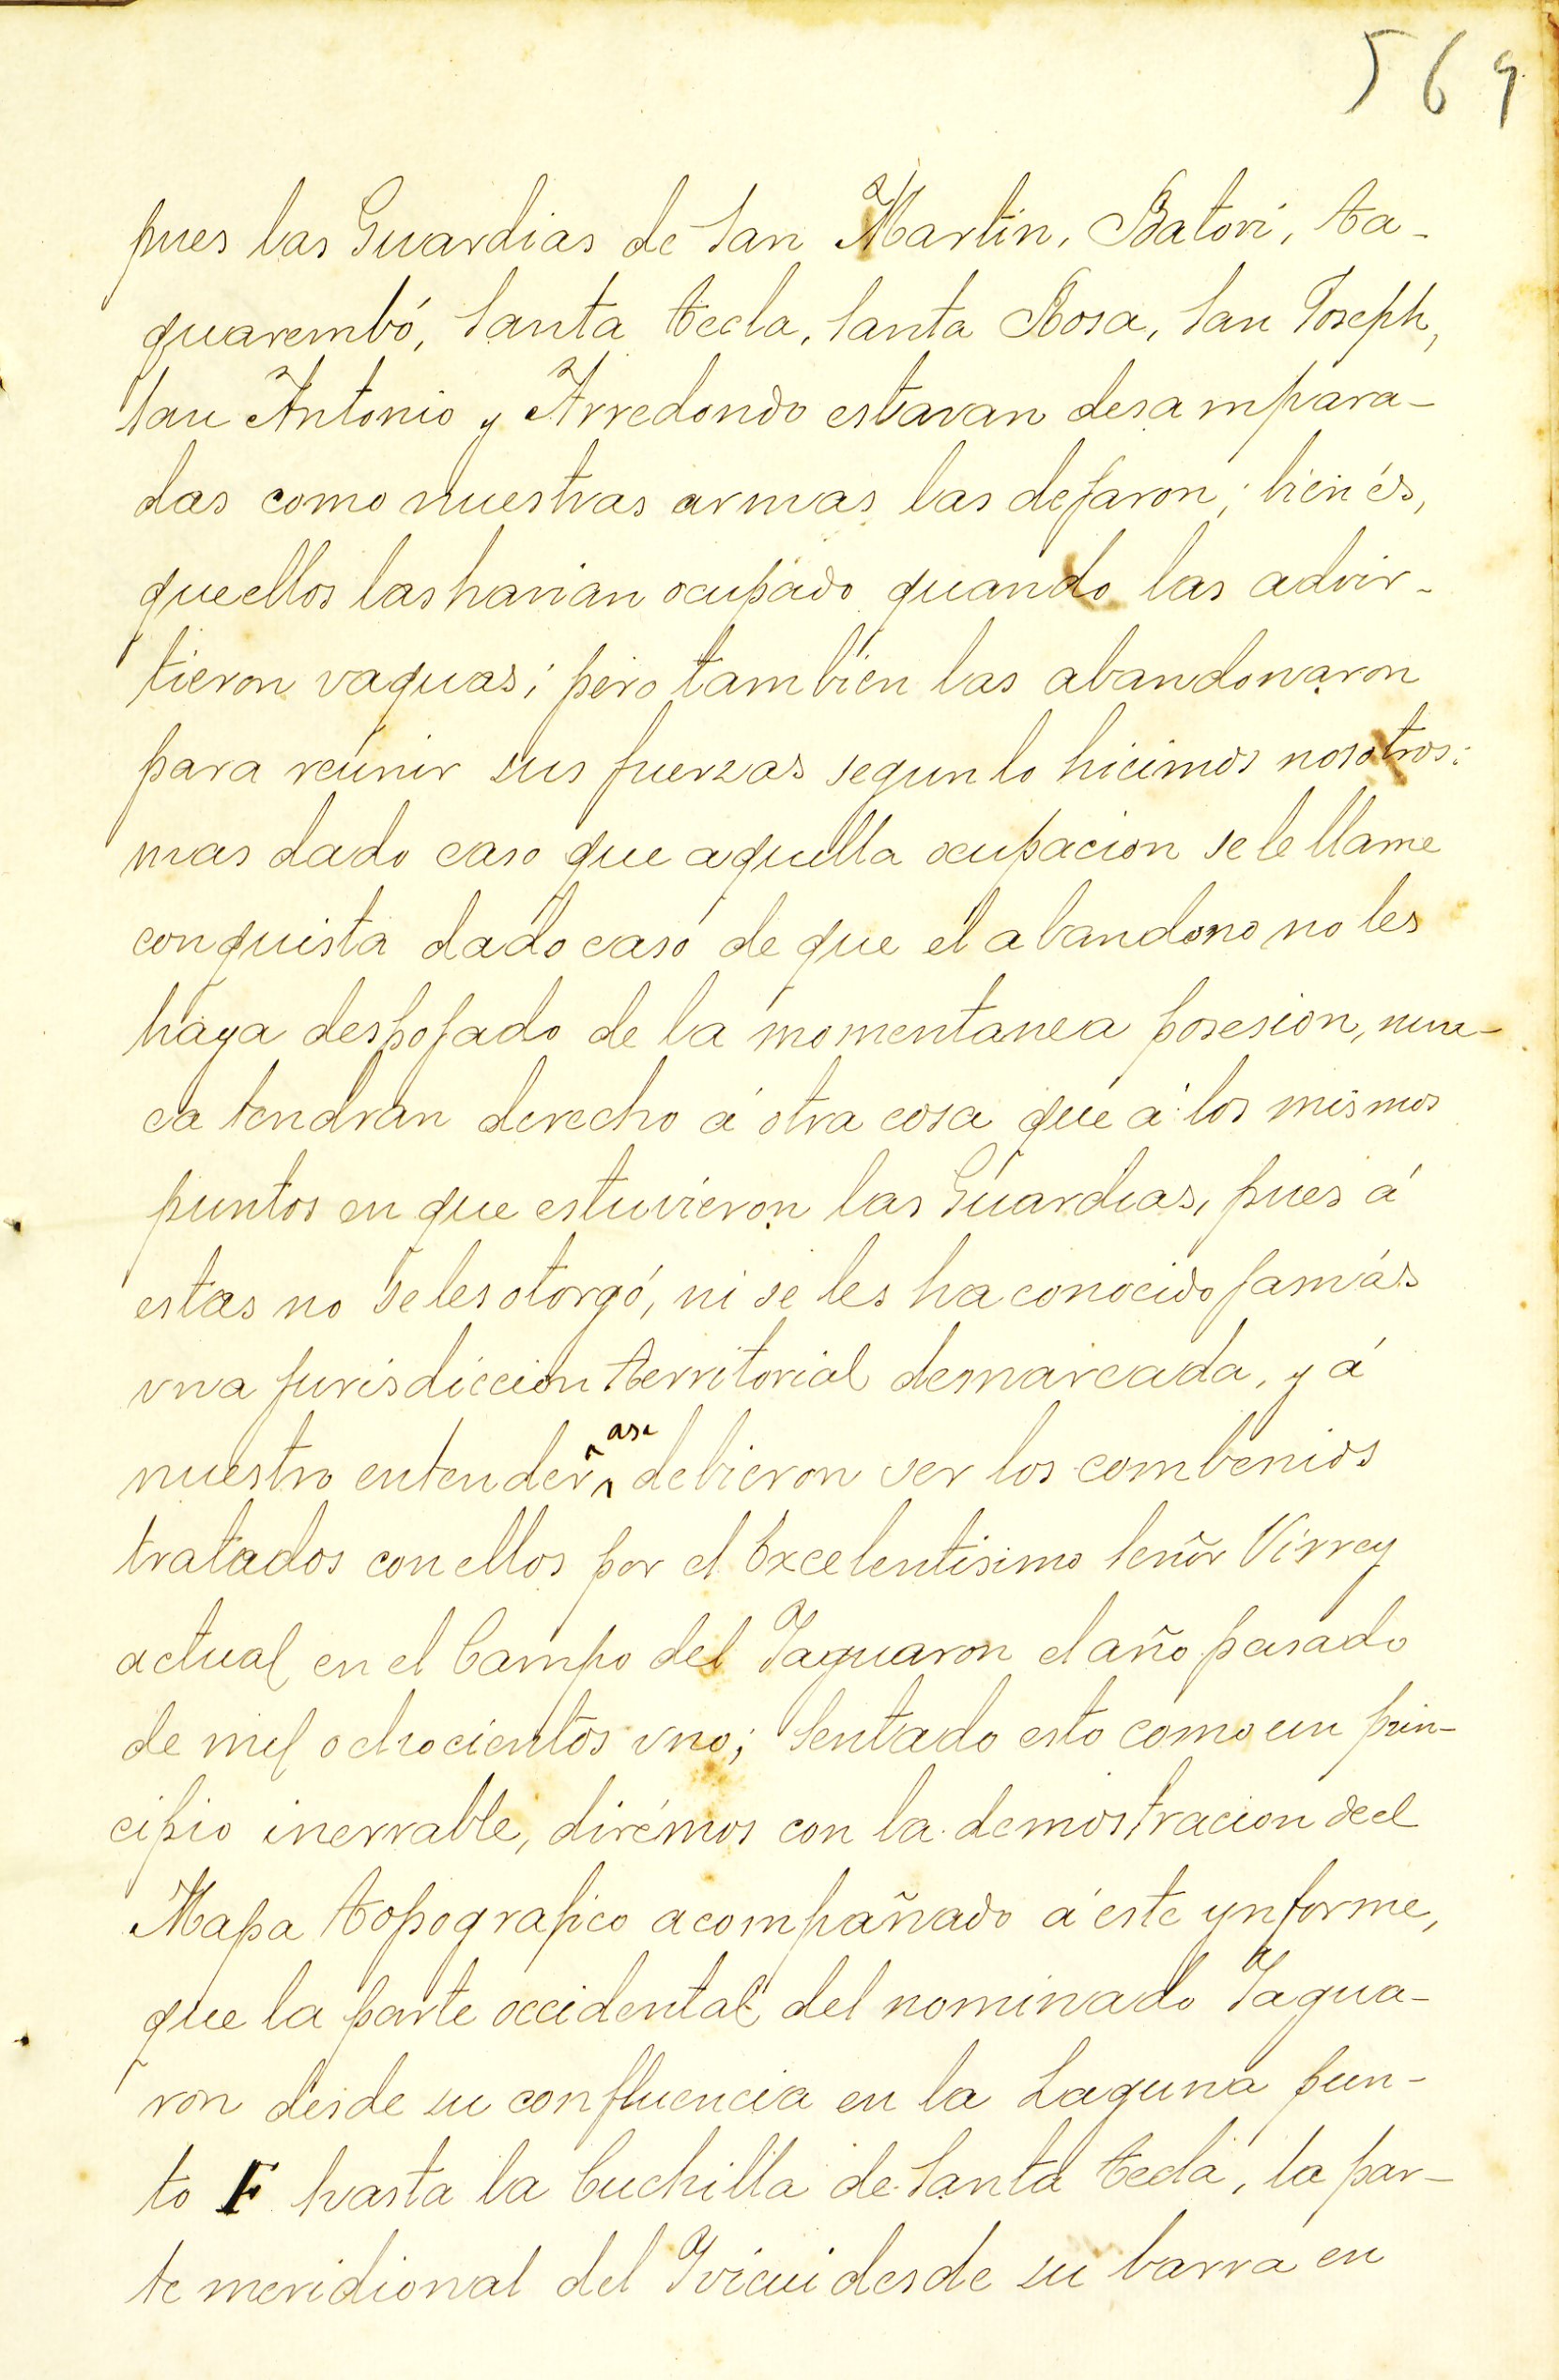 569
pues las Guardias de San Martin, Batovi, Ta-
quarembó, Santa Tecla, Santa Rosa, San Joseph,
San Antonio y Arredondo estavan desampara-
das como nuestras armas las dejaron; bien és,
que ellos las havian ocupado quando las advir-
tieron vaguas; pero tambien las abandonaron
para reunir sus fuerzas segun lo hicimos nosotros:
mas dado caso que aquella ocupacion se le llame
conquista dado caso de que el abandono no les
haya despojado de la momentanea posesion, nun-
ca tendran derecho á otra cosa que á los mismos
puntos en que estuvieron las Guardias, pues á
estas no se les otorgó, ni se les ha conocido jamás
vna jurisdiccion territorial demarcada, y á
nuestro entender asi debieron ser los combenios
tratados con ellos por el Excelentisimo Señor Virrey
actual en el Campo del Jaguaron el año pasado
de mil ochocientos vno; Sentado esto como un prin-
cipio inerrable, dirémos con la demostracion deel
Mapa topografico acompañado á este ynforme,
que la parte occidental del nominado Jagua-
ron desde su confluencia en la Laguna pun-
to F hasta la Cuchilla de Santa Tecla, la par-
te meridional del Ivicui desde su barra en